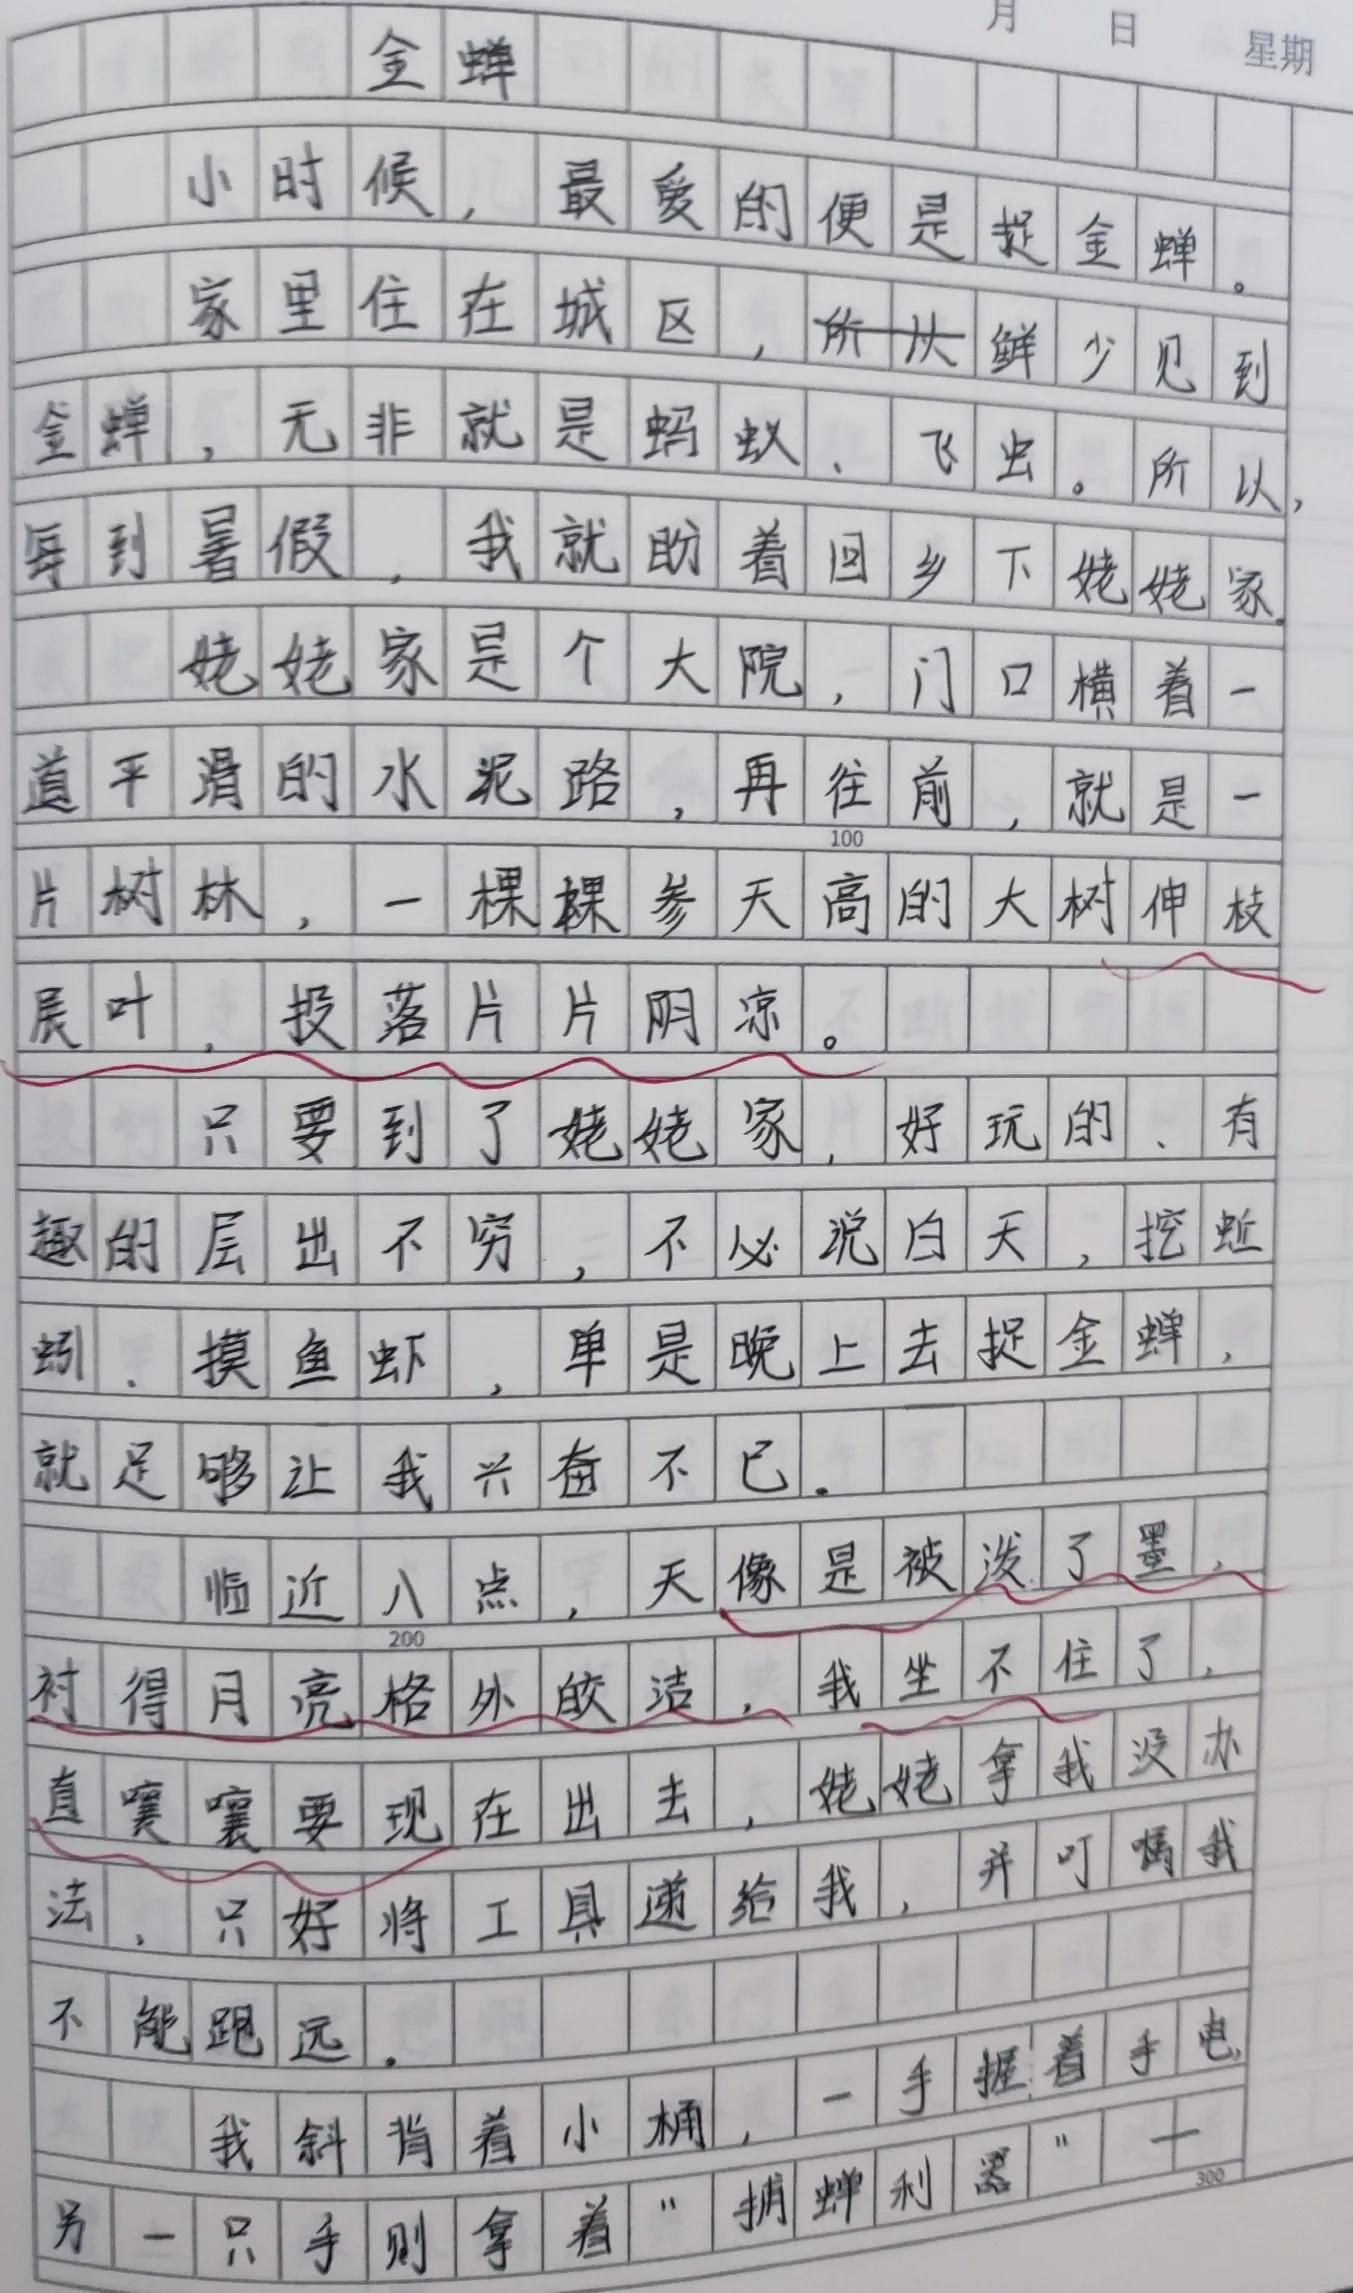 月 日 星期
金蝉
小时候，最爱的便是捉金蝉。
家里住在城区，所以鲜少见到
金蝉，无非就是蚂蚁、飞虫。所以，
每到暑假，我就盼着回乡下姥姥家。
姥姥家是个大院，门口横着一
道平滑的水泥路，再往前，就是一
片树林，一棵棵参天高的大树伸枝
展叶，投落片片阴凉。
只要到了姥姥家，好玩的、有
趣的层出不穷，不必说白天，挖蚯
蚓、摸鱼虾，单是晚上去捉金蝉，
就足够让我兴奋不已。
临近八点，天像是被泼了墨，
衬得月亮格外皎洁，我坐不住了，
直嚷嚷要现在出去，姥姥拿我没办
法，只好将工具递给我，并叮嘱我
不能跑远。
我斜背着小桶，一手握着手电，
另一只手则拿着"捕蝉利器"一
100
200
300